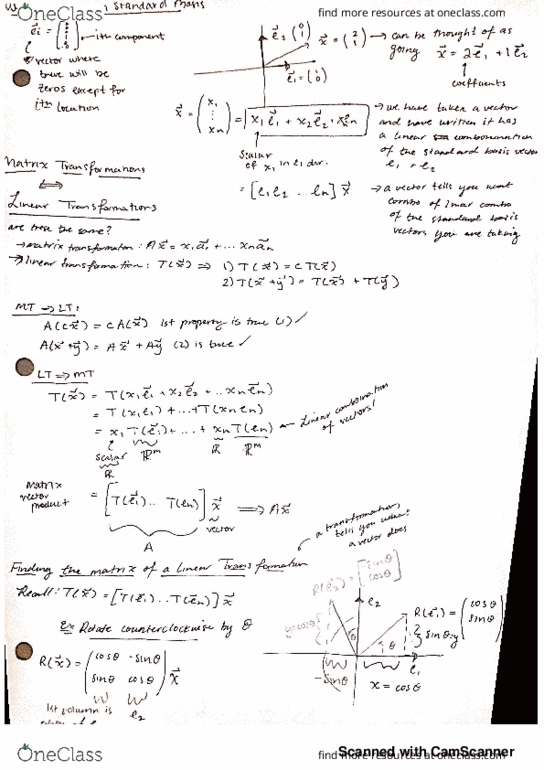 OneClass
find more resources at oneclass.com
standard basis
e⃗i = ← ith component
vector where
there will be
zeros except for
ith location
e⃗2 = (0 1)
x⃗ = (2 1) → can be thought of as
going x⃗ = 2e⃗1 + 1e⃗2
e⃗1 = (1 0)
coefficients
x⃗ = (x1 ⋮ xn) = x1e⃗1 + x2e⃗2 · xnen
scalar
of x1 in e1 dir.
→ we have taken a vector
and have written it has
a linear combonation
of the standard basis vector
e1 + e2
= [e1 e2 ... en] x⃗
→ a vector tells you what
combo of linear combo
of the standard basis
vectors you are taking
Matrix Transformations
⟺
Linear Transformations
are these the same?
→ matrix transformation: Ax⃗ = x1a⃗1 + ... xna⃗n
→ linear transformation: T(x⃗) ⇒ 1) T(x⃗) = cT(x⃗)
2) T(x⃗+y⃗) = T(x⃗) + T(y⃗)
MT → LT:
A(cx⃗) = cA(x⃗) 1st property is true (1) ✓
A(x⃗+y⃗) = Ax⃗ + Ay⃗ (2) is true ✓
LT ⇒ MT
T(x⃗) = T(x1e⃗1 + x2e⃗2 + ... xne⃗n)
= T(x1e1) + ... + T(xnen)
= x1T(e⃗1) + ... + xnT(en) ← Linear combination
of vectors!
scalar ℝ ℝᵐ ℝ ℝᵐ
matrix
vector
product
= [T(e⃗1) ... T(en)] x⃗ ⟹ Ax⃗
vector
A
a transformation,
tells you what
a vector does
Finding the matrix of a linear Transformation
Recall: T(x⃗) = [T(e1) ... T(en)] x⃗
Ex Rotate counterclockwise by θ
R(x⃗) = (cosθ -sinθ
sinθ cosθ) x⃗
1st column is
e2
R(e⃗2) = [-sinθ cosθ]
e2
y=cosθ
θ
θ
R(e⃗1) = (cosθ sinθ)
sinθ=y
e1
-sinθ
x = cosθ
OneClass
find more resources at oneclass.com
Scanned with CamScanner